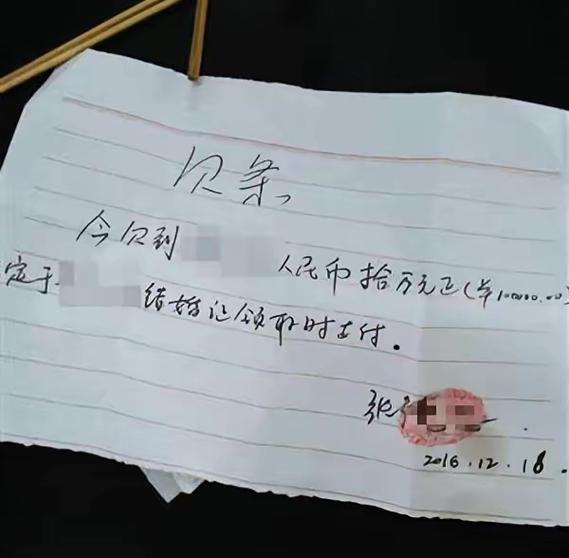 欠条
今欠到 人民币拾万元正(¥100000.00)
定于 结婚证领取时支付。
张
2016.12.18.